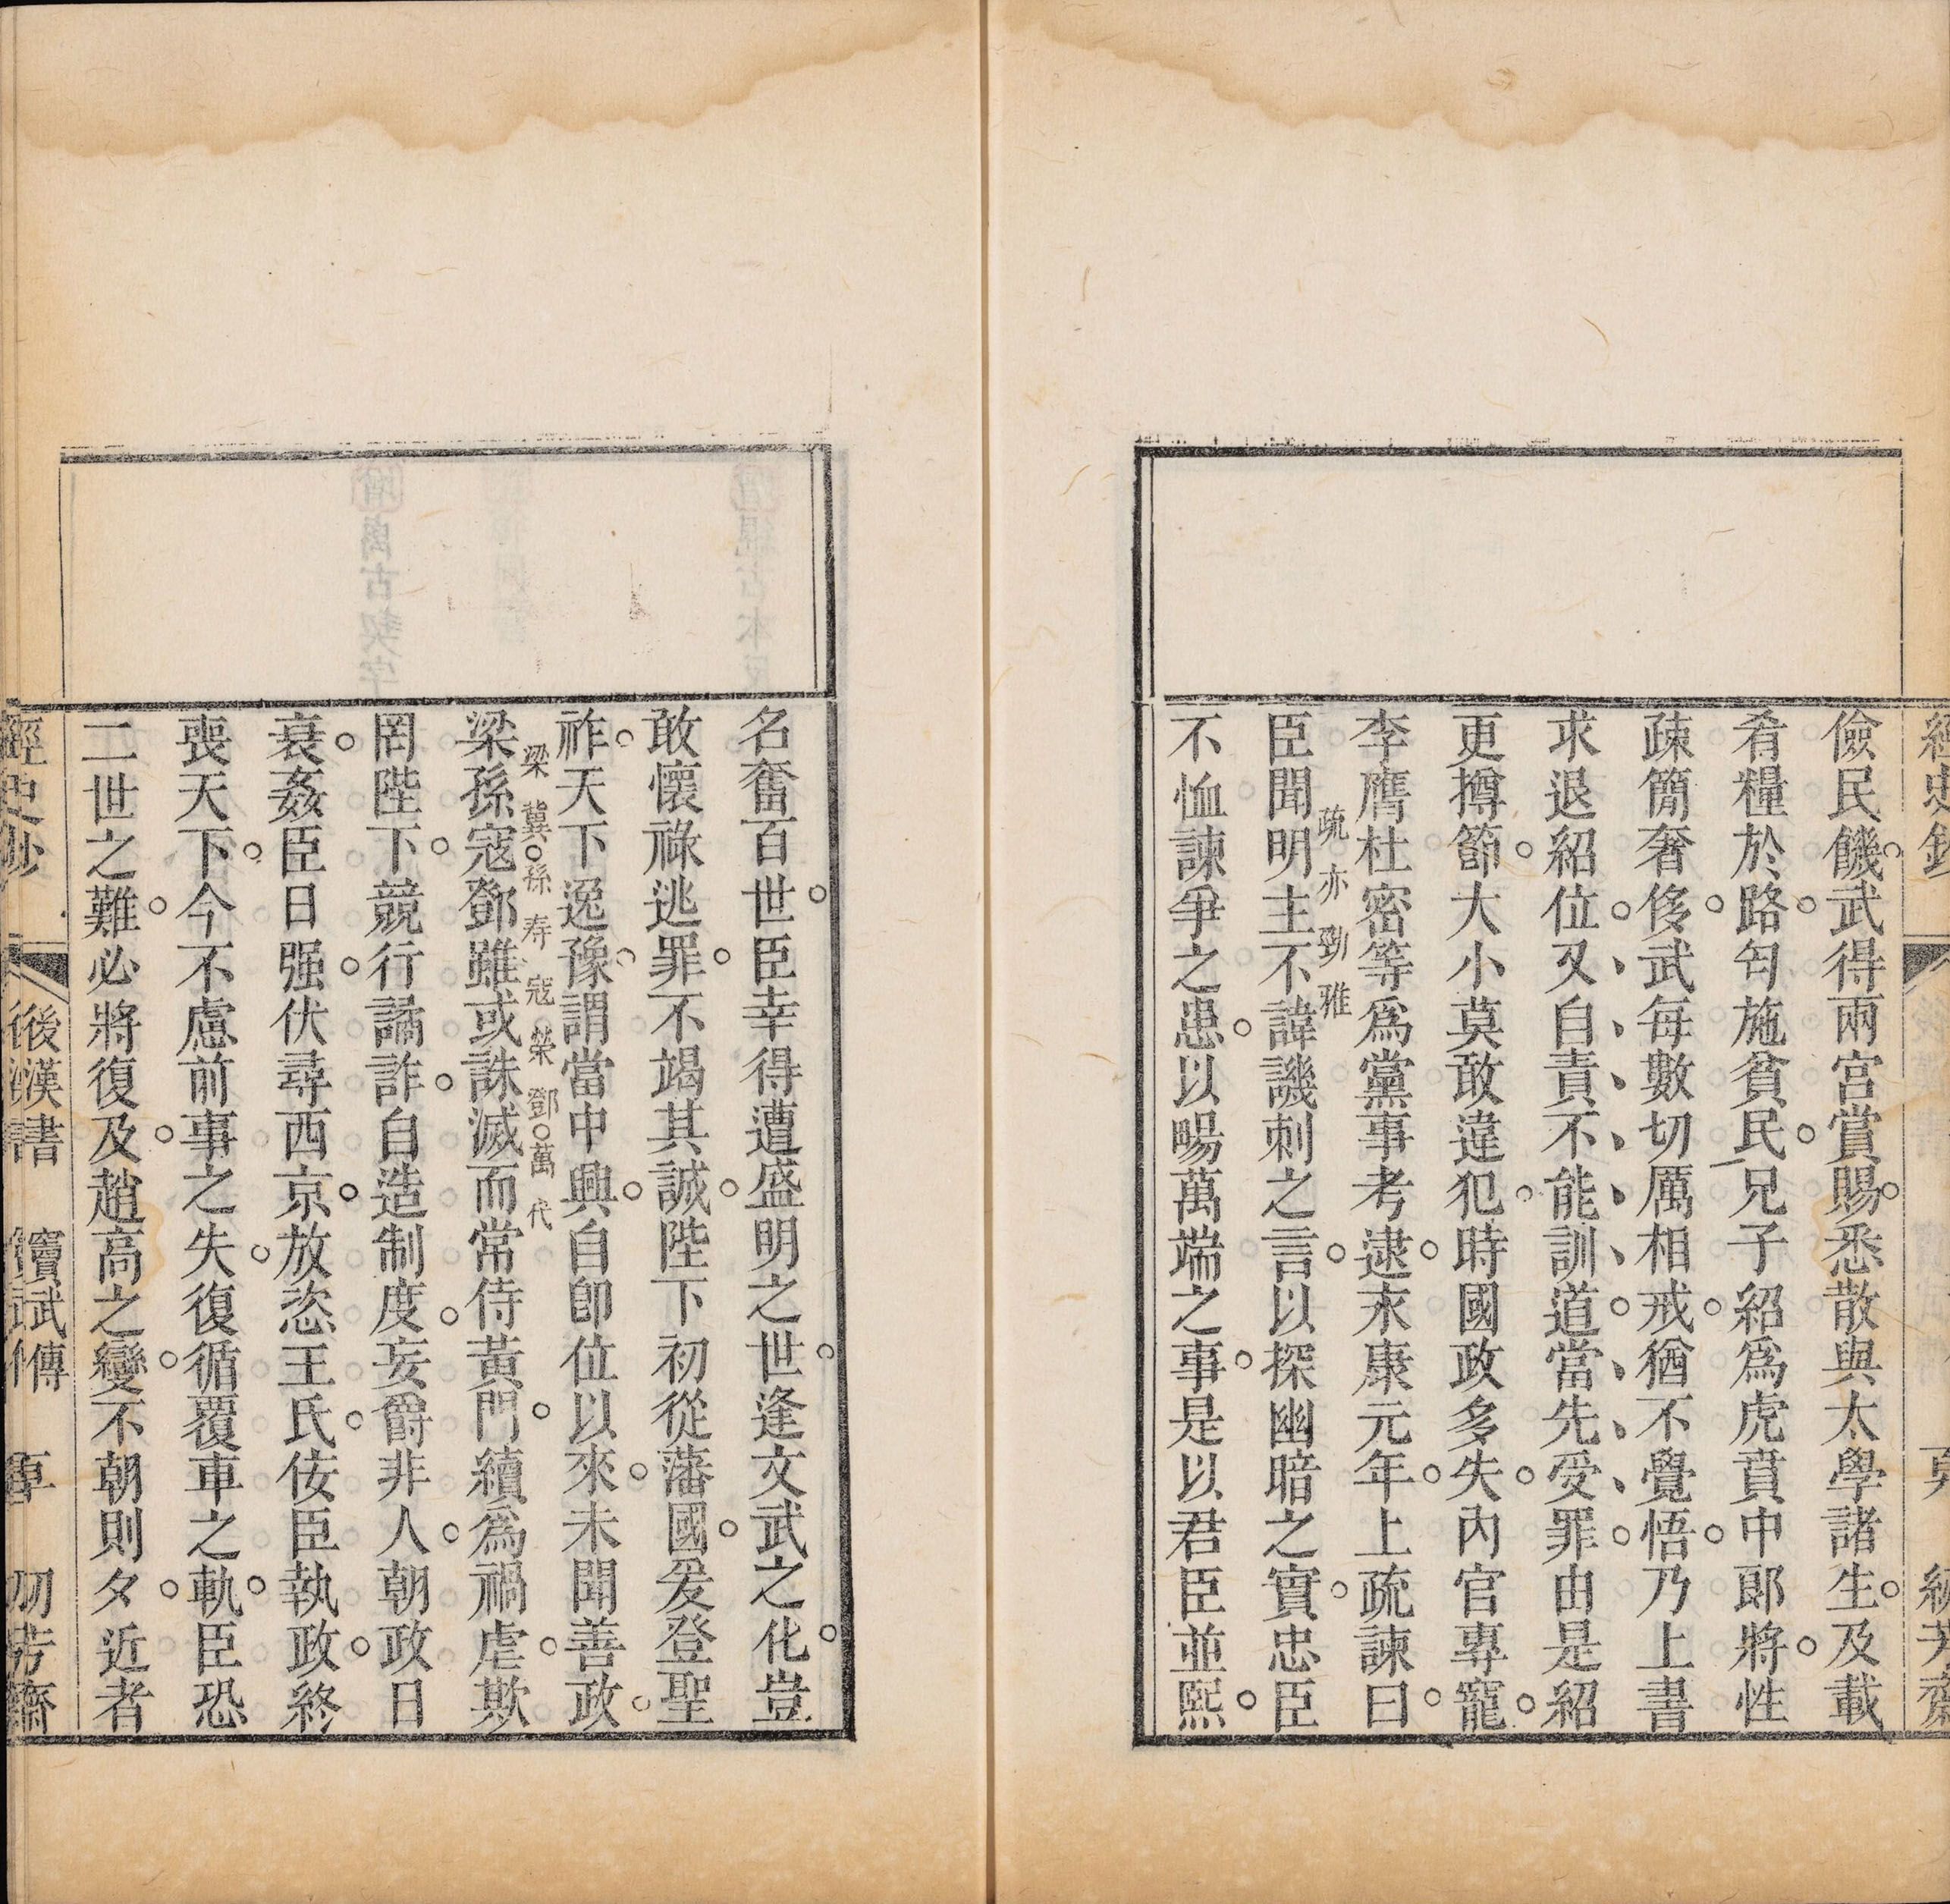 儉民饑武得兩宮賞賜悉散與太學諸生及載
肴糧於路匄施貧民兄子紹爲虎賁中郎將性
疎簡奢侈武每數切厲相戒猶不覺悟乃上書
求退紹位又自責不能訓道當先受罪由是紹
更撙節大小莫敢違犯時國政多失內官專寵
李膺杜密等爲黨事考逮永康元年上疏諫曰
疏亦勁雅
臣聞明主不諱譏刺之言以探幽暗之實忠臣
不恤諫爭之患以暢萬端之事是以君臣並熙
名奮百世臣幸得遭盛明之世逢文武之化豈
敢懷祿逃罪不竭其誠陛下初從藩國爰登聖
祚天下逸豫謂當中興自卽位以來未聞善政
梁冀孫寿寇榮鄧萬代
梁孫寇鄧雖或誅滅而常侍黃門續爲禍虐欺
罔陛下競行譎詐自造制度妄爵非人朝政日
衰姦臣日强伏尋西京放恣王氏佞臣執政終
喪天下今不慮前事之失復循覆車之軌臣恐
二世之難必將復及趙高之變不朝則夕近者
經史鈔 後漢書 竇武傳